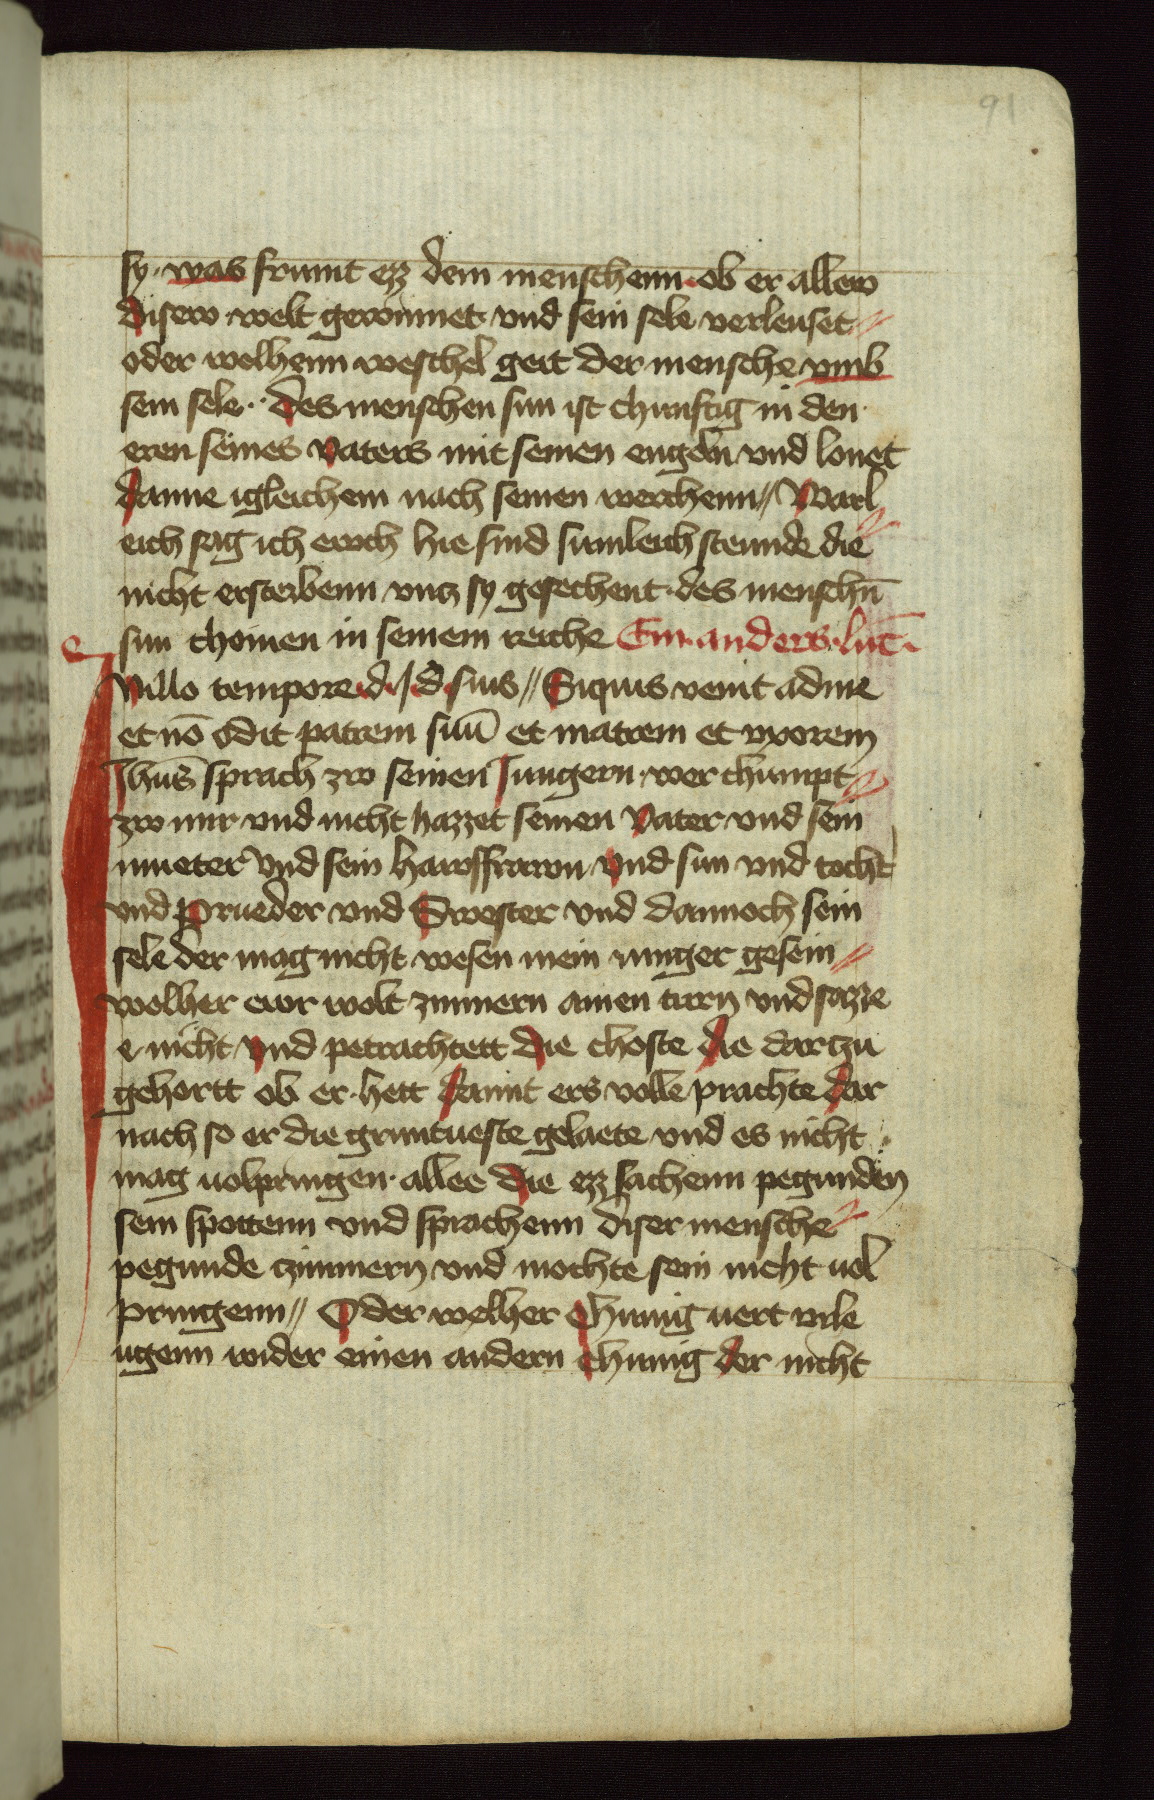 91
sy · was frumt ezz dem menschenn · ob er allew
disew welt gewinnet vnd sein sele verleuset
oder welhenn weschel geit der mensche vmb
sein sele · des menschen sun ist chunftig in den
eren seines vaters mit seinen engeln vnd lonet
danne igleichem nach seinen werchenn // Warl
eich sag ich ewch hie sind sumleich steunde die
nicht ersterbenn vncz sy gesechent · des menschn̄
sun chomen in seinem reiche Ein · anders · luc̄ ·
In illo tempore · d · J · d · suis // Siquis venit ad me
et nō odit patrem suū et matrem et vxorem
Jhūs sprach zw seinen Jungern · wer chumpt
zw mir vnd nicht hazzet seinen vater vnd sein
mueter vnd sein hawsfrawn vnd sun vnd tocht
vnd Prueder vnd Swester vnd dannoch sein
sele der mag nicht wesen mein iunger gesein
welher ewr wolt zimmern ainen turn vnd sazze
e nicht vnd petrachtett die choste die dar tzu
gehortt ob er · hett damit ers volle prachte dar
nach so er die gruntueste gelaete vnd es nicht
mag uolpringen · allee die ezz sachenn pegunden
sein spottenn vnd sprachenn diser mensche
pegunde czimmern vnd mochte sein nicht uol
pringenn // Oder welher chunig uert vrle
ugenn wider einen andern chunig der nicht